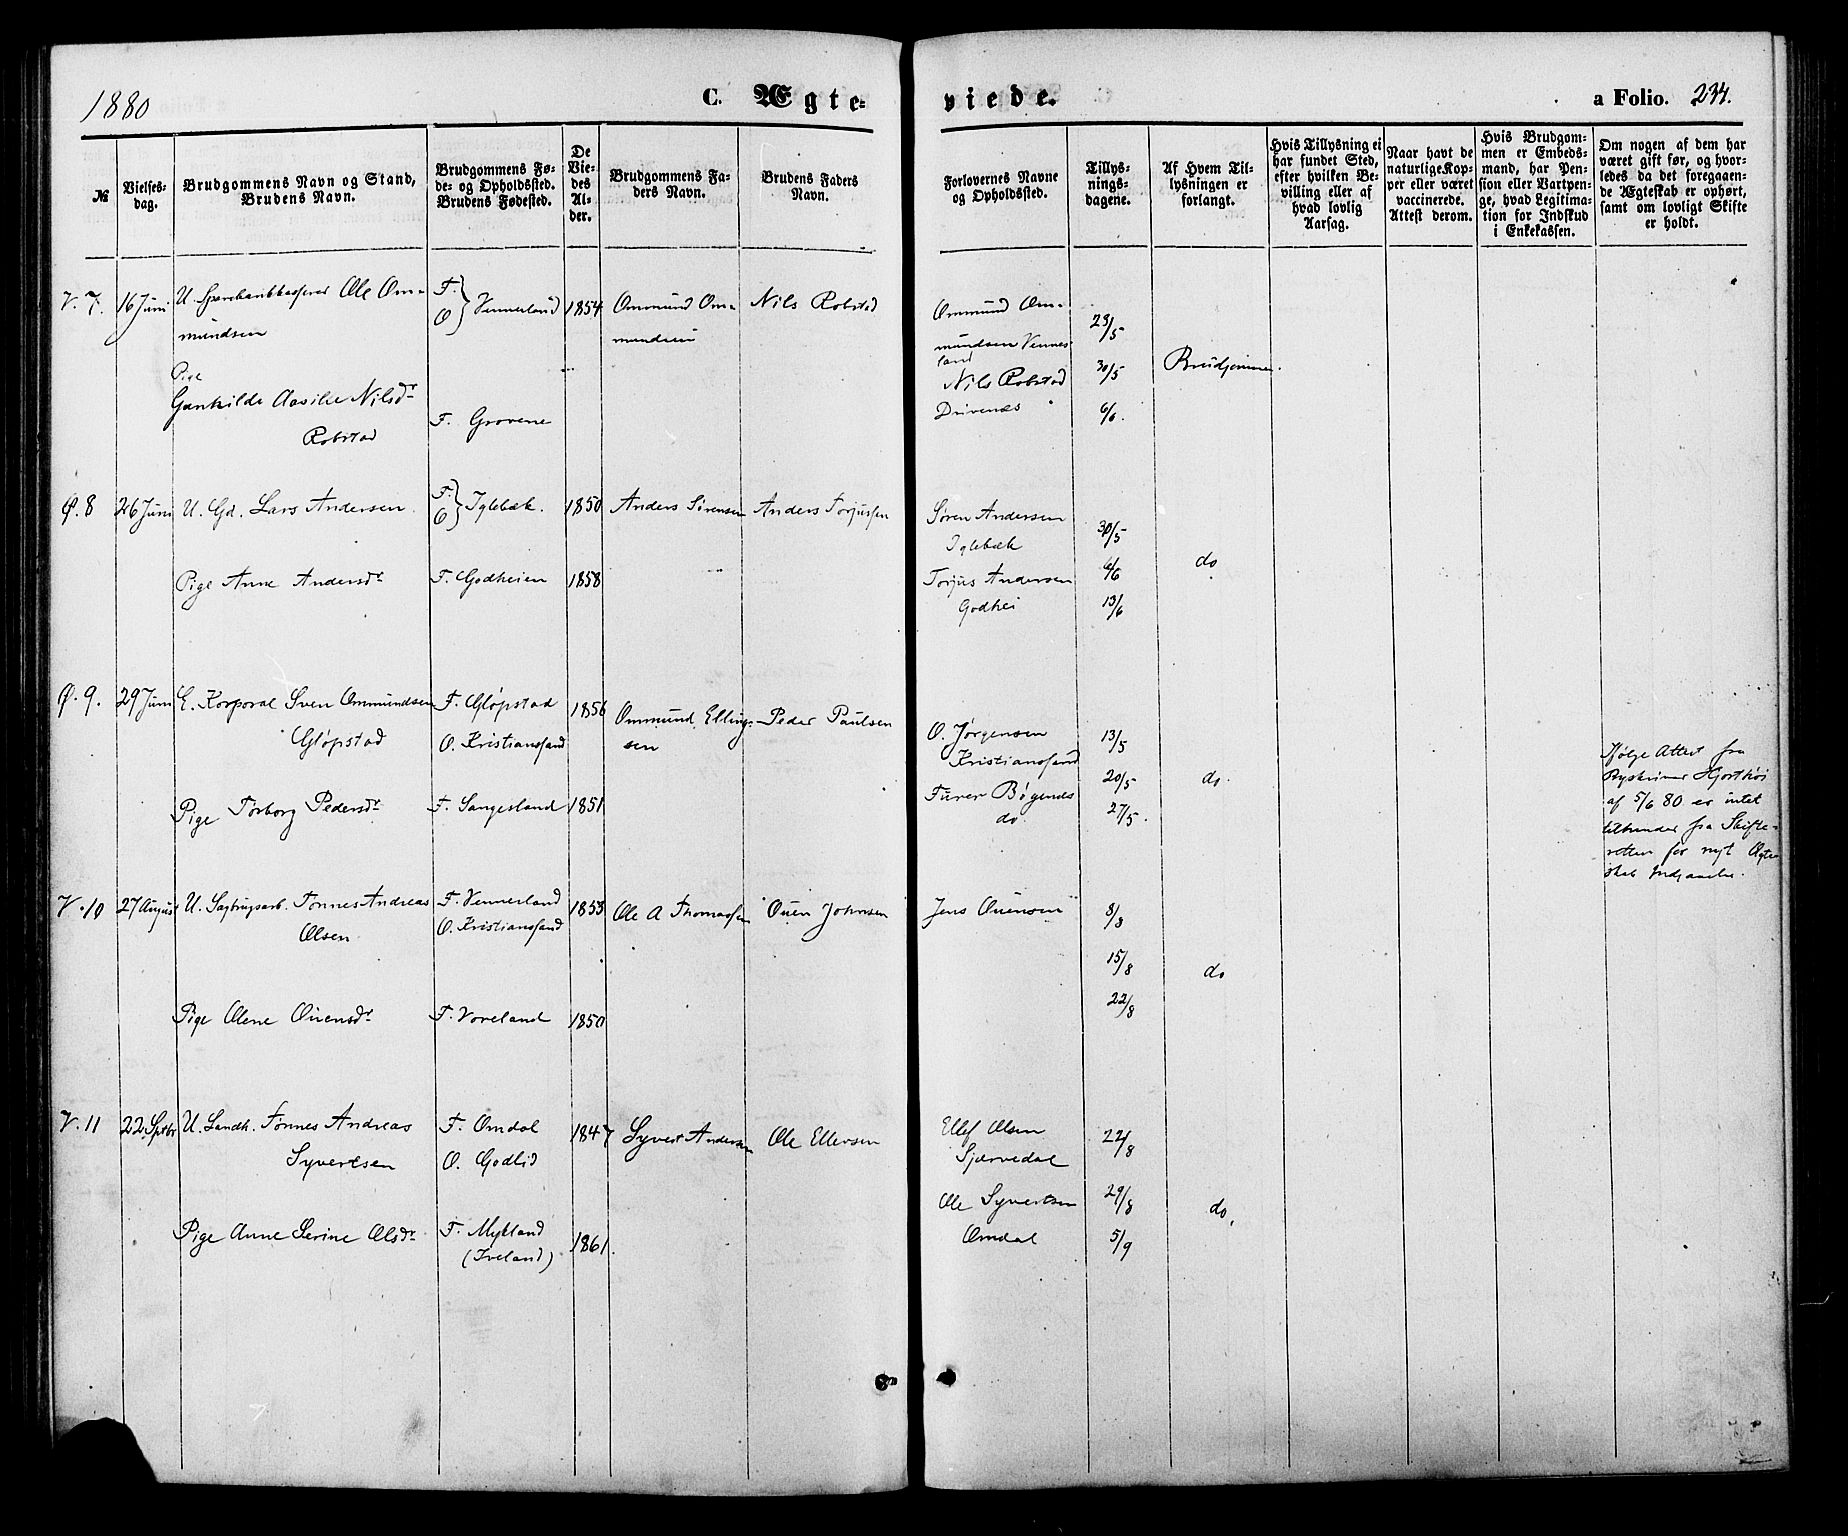 1880 C. Ægte=
viede. a Folio. 234.
№
Vielses-
dag.
Brudgommens Navn og Stand,
Brudens Navn.
Brudgommens Fø-
de- og Opholdssted.
Brudens Fødested.
De
Vie-
des
Al-
der.
Brudgommens Fa-
ders Navn.
Brudens Faders
Navn.
Forlovernes Navne
og Opholdssted.
Tillys-
nings-
dagene.
Af Hvem Til-
lysningen er
forlangt.
Hvis Tillysning ei
har fundet Sted,
efter hvilken Be-
villing eller af
hvad lovlig
Aarsag.
Naar havt de
naturlige Kop-
per eller været
vaccinerede.
Attest derom.
Hvis Brudgom-
men er Embeds-
mand, har Pen-
sion eller Vartpen-
ge, hvad Legitima-
tion for Indskud
i Enkekassen.
Om nogen af dem har
været gift før, og hvor-
ledes da det foregaaen-
de Ægteskab er ophørt,
samt om lovligt Skifte
er holdt.
V. 7. 16 Juni U. Ole Om-
mundsen
F. O } Vennesland 1854 Ommund Om-
mundsen
Nils Robstad
Ommund Om-
mundsen Vennes
land
Nils Robstad
Drivenes
23/5
30/5
6/6.
Brudgommen.
Pige
Gunhilde Aasilie Nilsdr
Robstad
F. Grovene
Ø. 8 26 Juni U. Gd. Lars Andersen F. O } Iglebæk. 1850 Anders Sørensen Anders Torjussen
Søren Andersen
Iglebæk
Torjus Andersen
Godhei
30/5
6/6
13/6
do
Pige Anne Andersdr F. Godheien 1858
Ø. 9. 29 Juni E. Korporal Sven Ommundsen
Gløpstad
F. Gløpstad
O. Kristianssand
1856 Ommund Elling-
sen
Peder Paulsen
O. Jørgensen
Kristianssand
Furer Bøgenes
do
13/5
20/5
27/5.
do.
Ifølge Attest fra
Hjorthøi
af 5/6 80 er intet
til hinder fra Skifte-
retten for nyt Ægte-
skab Indgaaelse.
Pige Torborg Pedersdr F. Sangesland 1851
V. 10 27 August U. Sagbrugsarb. Tønnes Andreas
Olsen
F. Vennesland
O. Kristianssand
1853 Ole A Thomassen Ouen Johnsen
Jens Ouensen
8/8
15/8
22/8
do
Pige Olene Ouensdr F. Voreland 1850
V. 11 22 Septbr U. Landh. Tønnes Andreas
Syvertsen
F. Omdal
O. Godlid
1847 Syvert Andersen Ole Ellevsen
Ellef Olsen
Sjærvedal
Ole Syvertsen
Omdal
22/8
29/8
5/9
do.
Pige Anne Serine Olsdr F. Mykland
(Iveland)
1861.